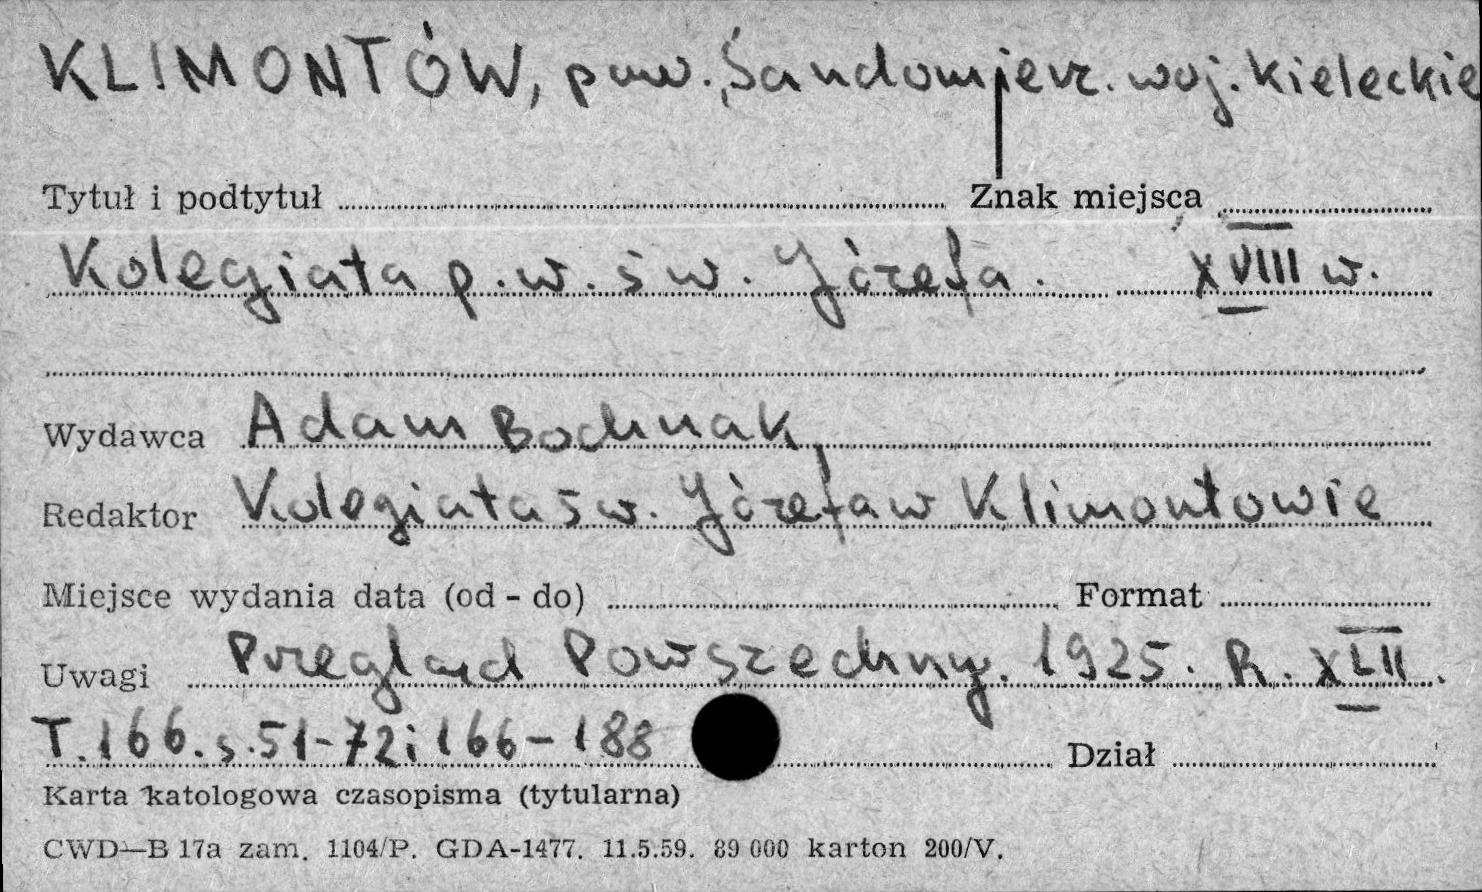 KLIMONTÓW, pow. Sandomierz. woj. Kieleckie
Tytuł i podtytuł Znak miejsca
Kolegiata p.w. św. Józefa. XVIII w.
Wydawca Adam Bochnak,
Redaktor Kolegiata św. Józefa w Klimontowie
Miejsce wydania data (od - do) Format
Uwagi Przegląd Powszechny. 1925. R. XLII.
T. 166. s. 51-72 i 166-188 Dział
Karta katologowa czasopisma (tytularna)
CWD—B 17a zam. 1104/P. GDA-1477. 11.5.59. 89 000 karton 200/V.